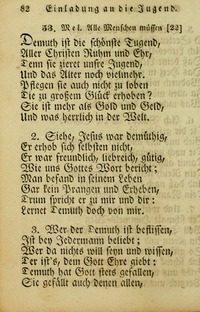 82 Einladung an die Jugend.
53. Mel. Alle Menschen müssen [22]
Demuth ist die schönste Tugend,
Aller Christen Ruhm und Ehr,
Denn sie zieret unsre Jugend,
Und das Alter noch vielmehr.
Pflegen sie auch nicht zu loben
Die zu großem Glück erhoben?
Sie ist mehr als Gold und Geld,
Und was herrlich in der Welt.
2. Siehe, Jesus war demüthig,
Er erhob sich selbsten nicht,
Er war freundlich, liebreich, gütig,
Wie uns Gottes Wort bericht;
Man befand in seinem Leben
Gar kein Prangen und Erheben,
Drum spricht er zu mir und dir:
Lernet Demuth doch von mir.
3. Wer der Demuth ist beflissen,
Ist bey Jedermann beliebt;
Wer da nichts will seyn und wissen,
Der ist's, dem Gott Ehre giebt;
Demuth hat Gott stets gefallen,
Sie gefällt auch denen allen,